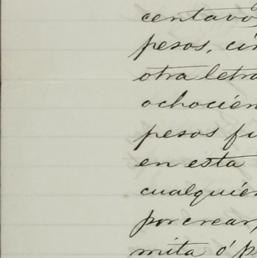 centavo
pesos, cin
otra letra
ochocien
pesos fu
en esta
cualquier
por crear,
mita ó p